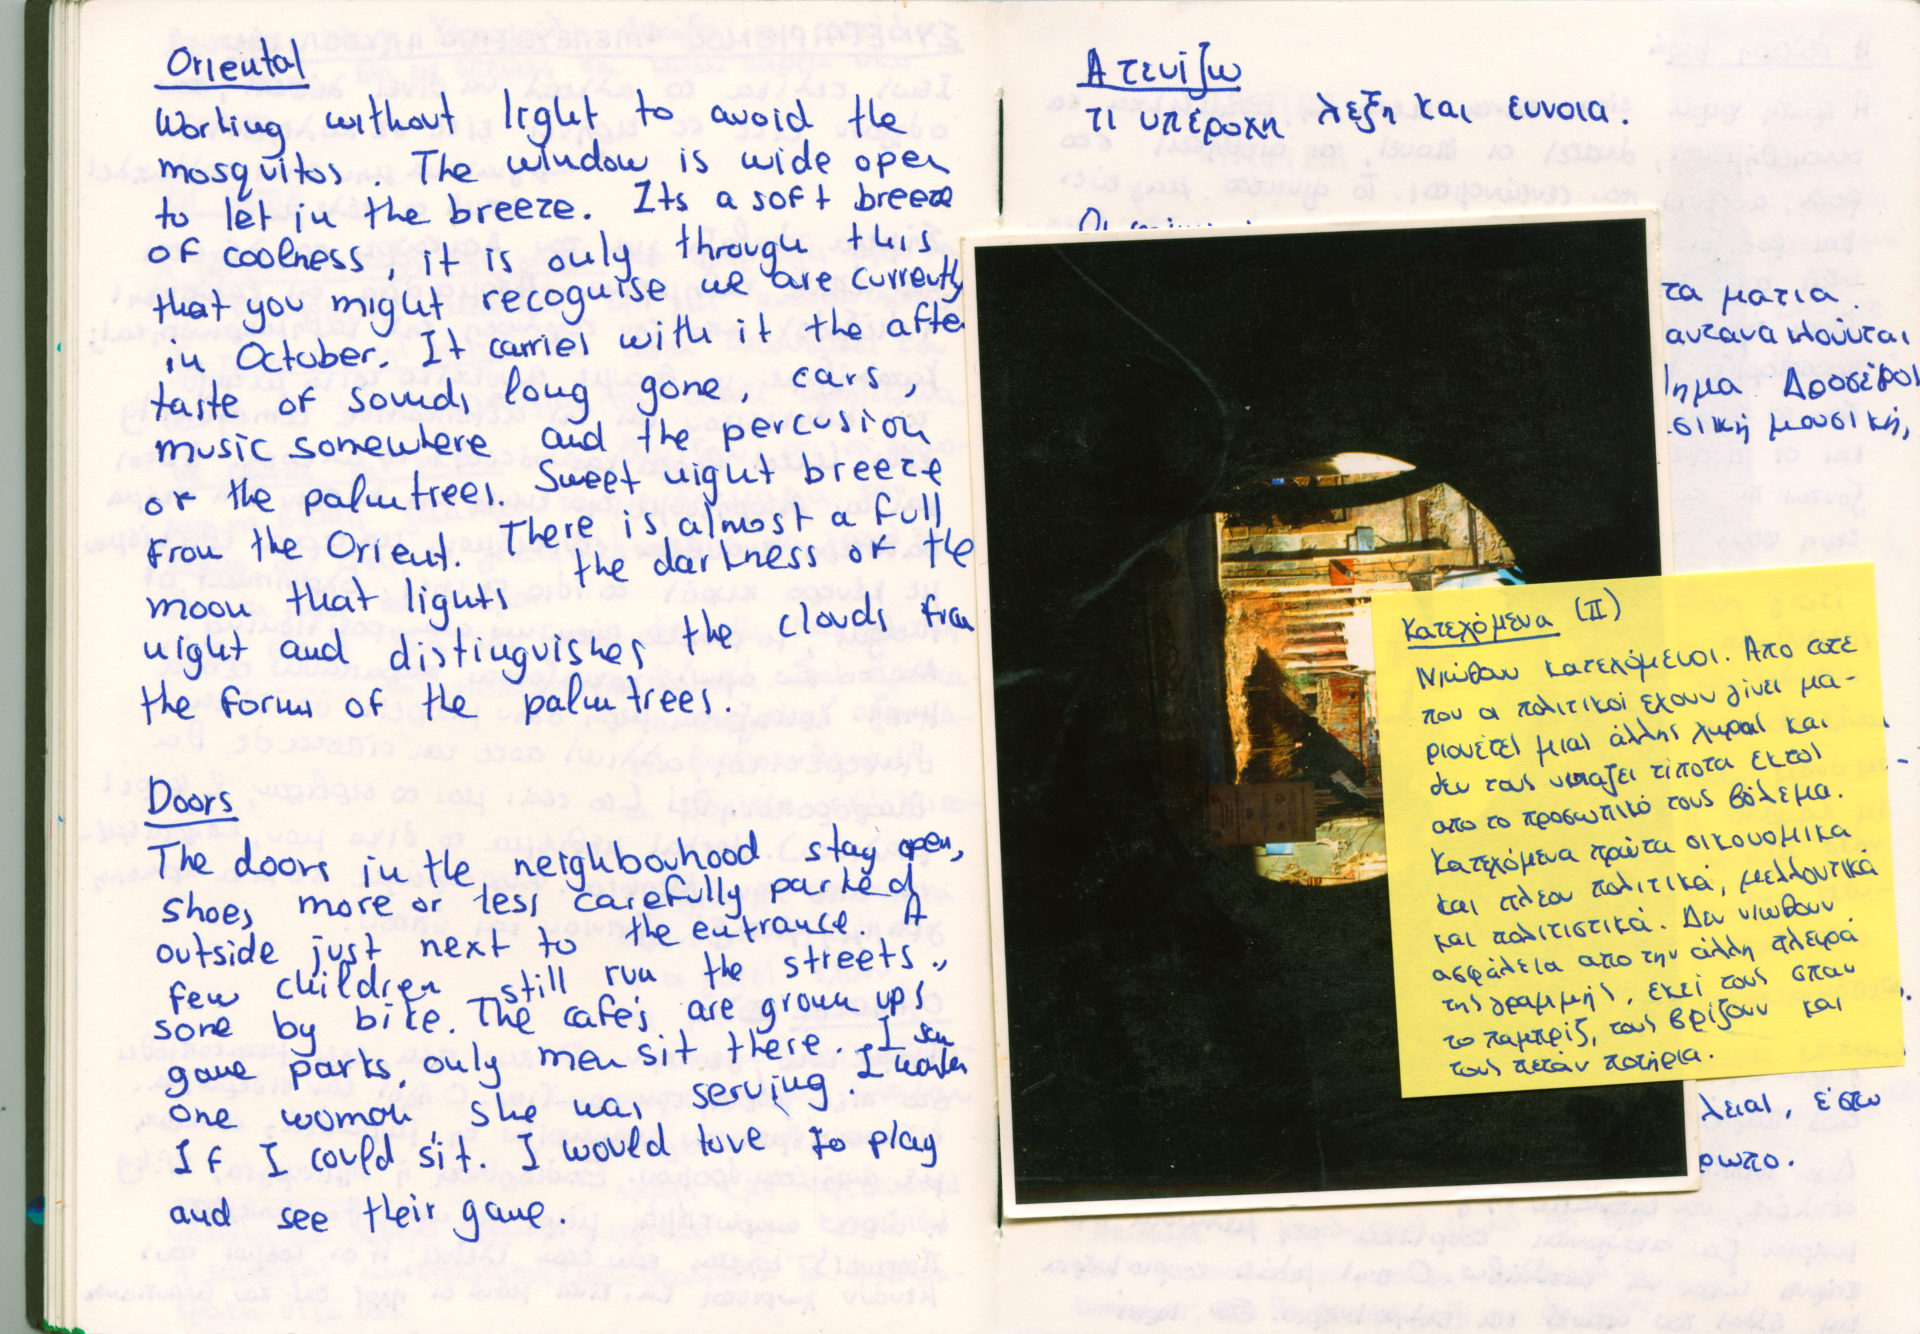 Oriental
Working without light to avoid the
mosquitos. The window is wide open
to let in the breeze. Its a soft breeze
of coolness, it is only through this
that you might recognise we are currently
in October. It carries with it the after
taste of sounds long gone, cars,
music somewhere and the percusion
of the palmtrees. Sweet night breeze
from the Orient. There is almost a full
moon that lights the darkness of the
night and distinguishes the clouds from
the forms of the palmtrees.
Doors
The doors in the neighbouhood stay open,
shoes more or less carefully parked
outside just next to the entrance. A
few children still run the streets,
some by bike. The cafes are grown ups
game parks, only men sit there. I saw
one woman, she was serving. I wonder
If I could sit. I would love to play
and see their game.
Ατενίζω
τι υπέροχη λεξη και εννοια.
Οι
τα ματια.
αντανακλούνται
ημα Δροσεροί
σική μουσική,
λειαι, έστω
ρωπο.
Κατεχόμενα (II)
Νιώθουν κατεχόμενοι. Απο τοτε
που οι πολιτικοί εχουν γίνει μα-
ριονέτες μιας άλλης χωρας και
δεν τους νιαζει τίποτα εκτος
απο το προσωπικό τους βόλεμα.
Κατεχόμενα πρώτα οικονομικα
και πλεον πολιτικά, μελλοντικά
και πολιτιστικά. Δεν νιωθουν
ασφάλεια απο την άλλη πλευρά
της γραμμής, εκεί τους σπαν
το παμπρίζ, τους βρίζουν και
τους πετάν ποτήρια.